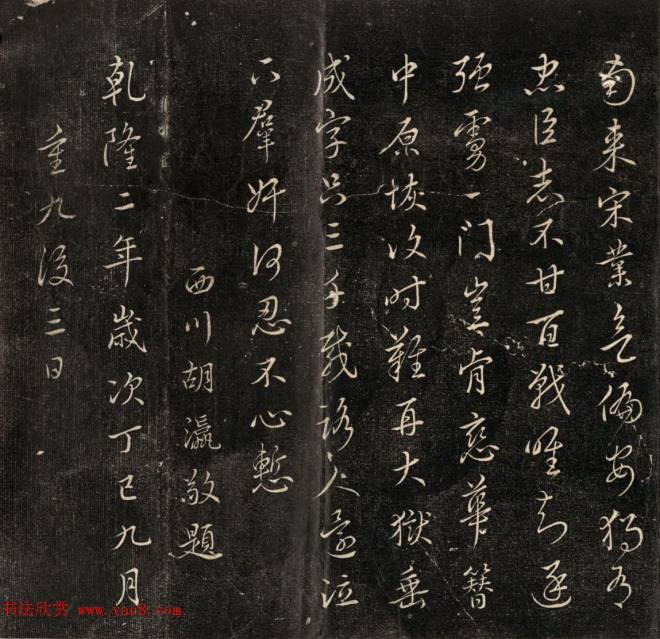 南来宋業偏安獨有
忠臣志不甘百戰唯知逐
强虜一門豈肯戀華簪
中原恢復时難再大獄垂
成字只三千載路人還泣
下羣奸何忍不心慙
西川胡瀛敬題
乾隆二年歲次丁巳九月
重九後三日
书法欣赏 www.yac8.com